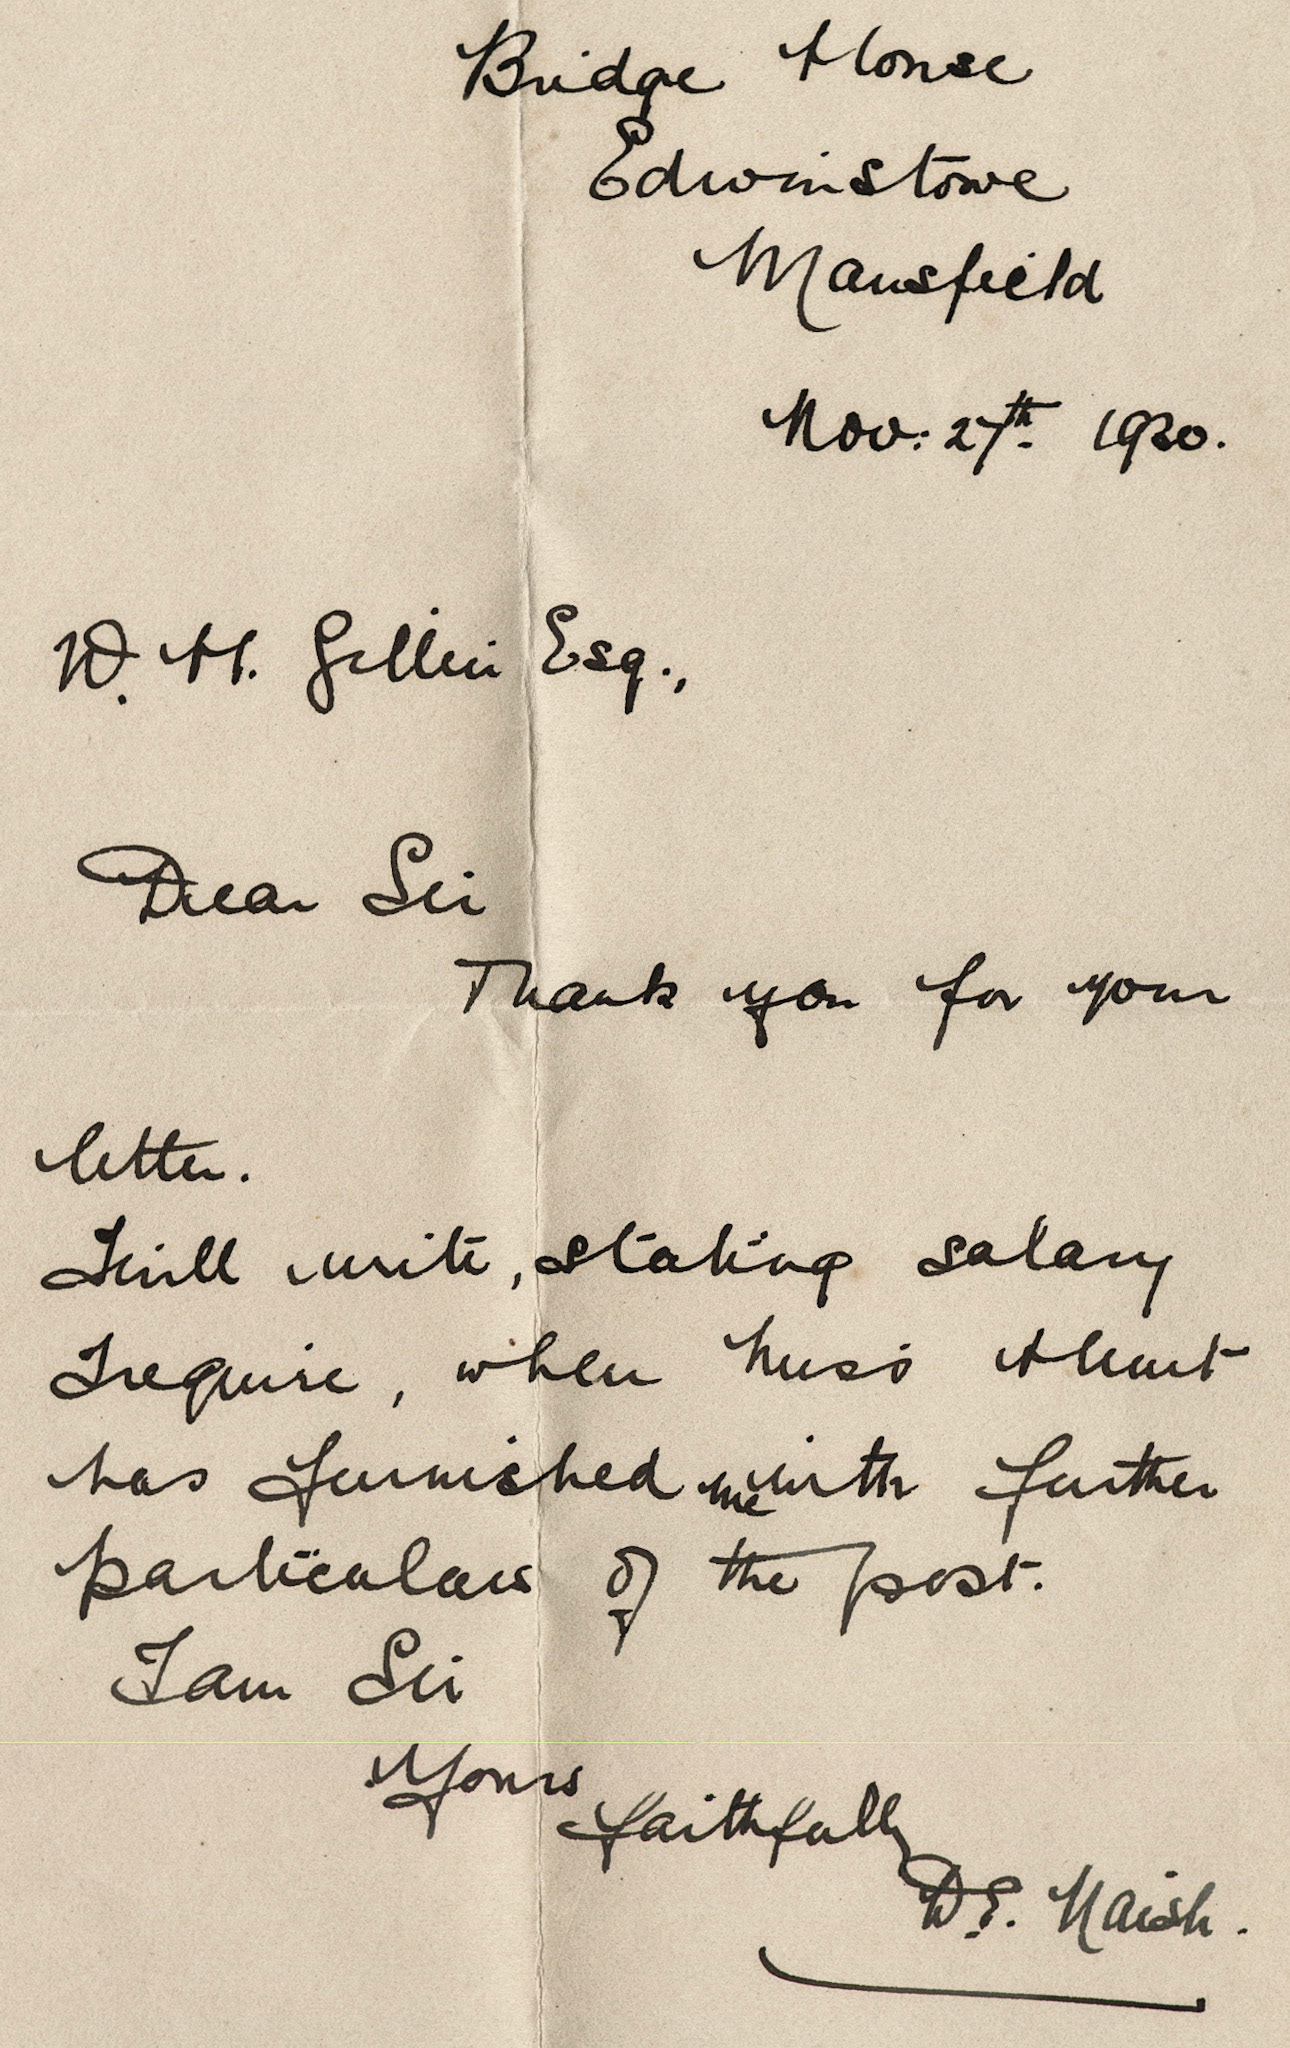 Bridge House
Edwinstowe
Mansfield
Nov: 27th. 1920.
W. H. Gillin Esq.,
Dear Sir
Thank you for your
letter.
I will write, stating salary
I require, when Miss Hunt
has furnished me with further
particulars of the post.
I am Sir
Yours
faithfully
D. E. Naish.